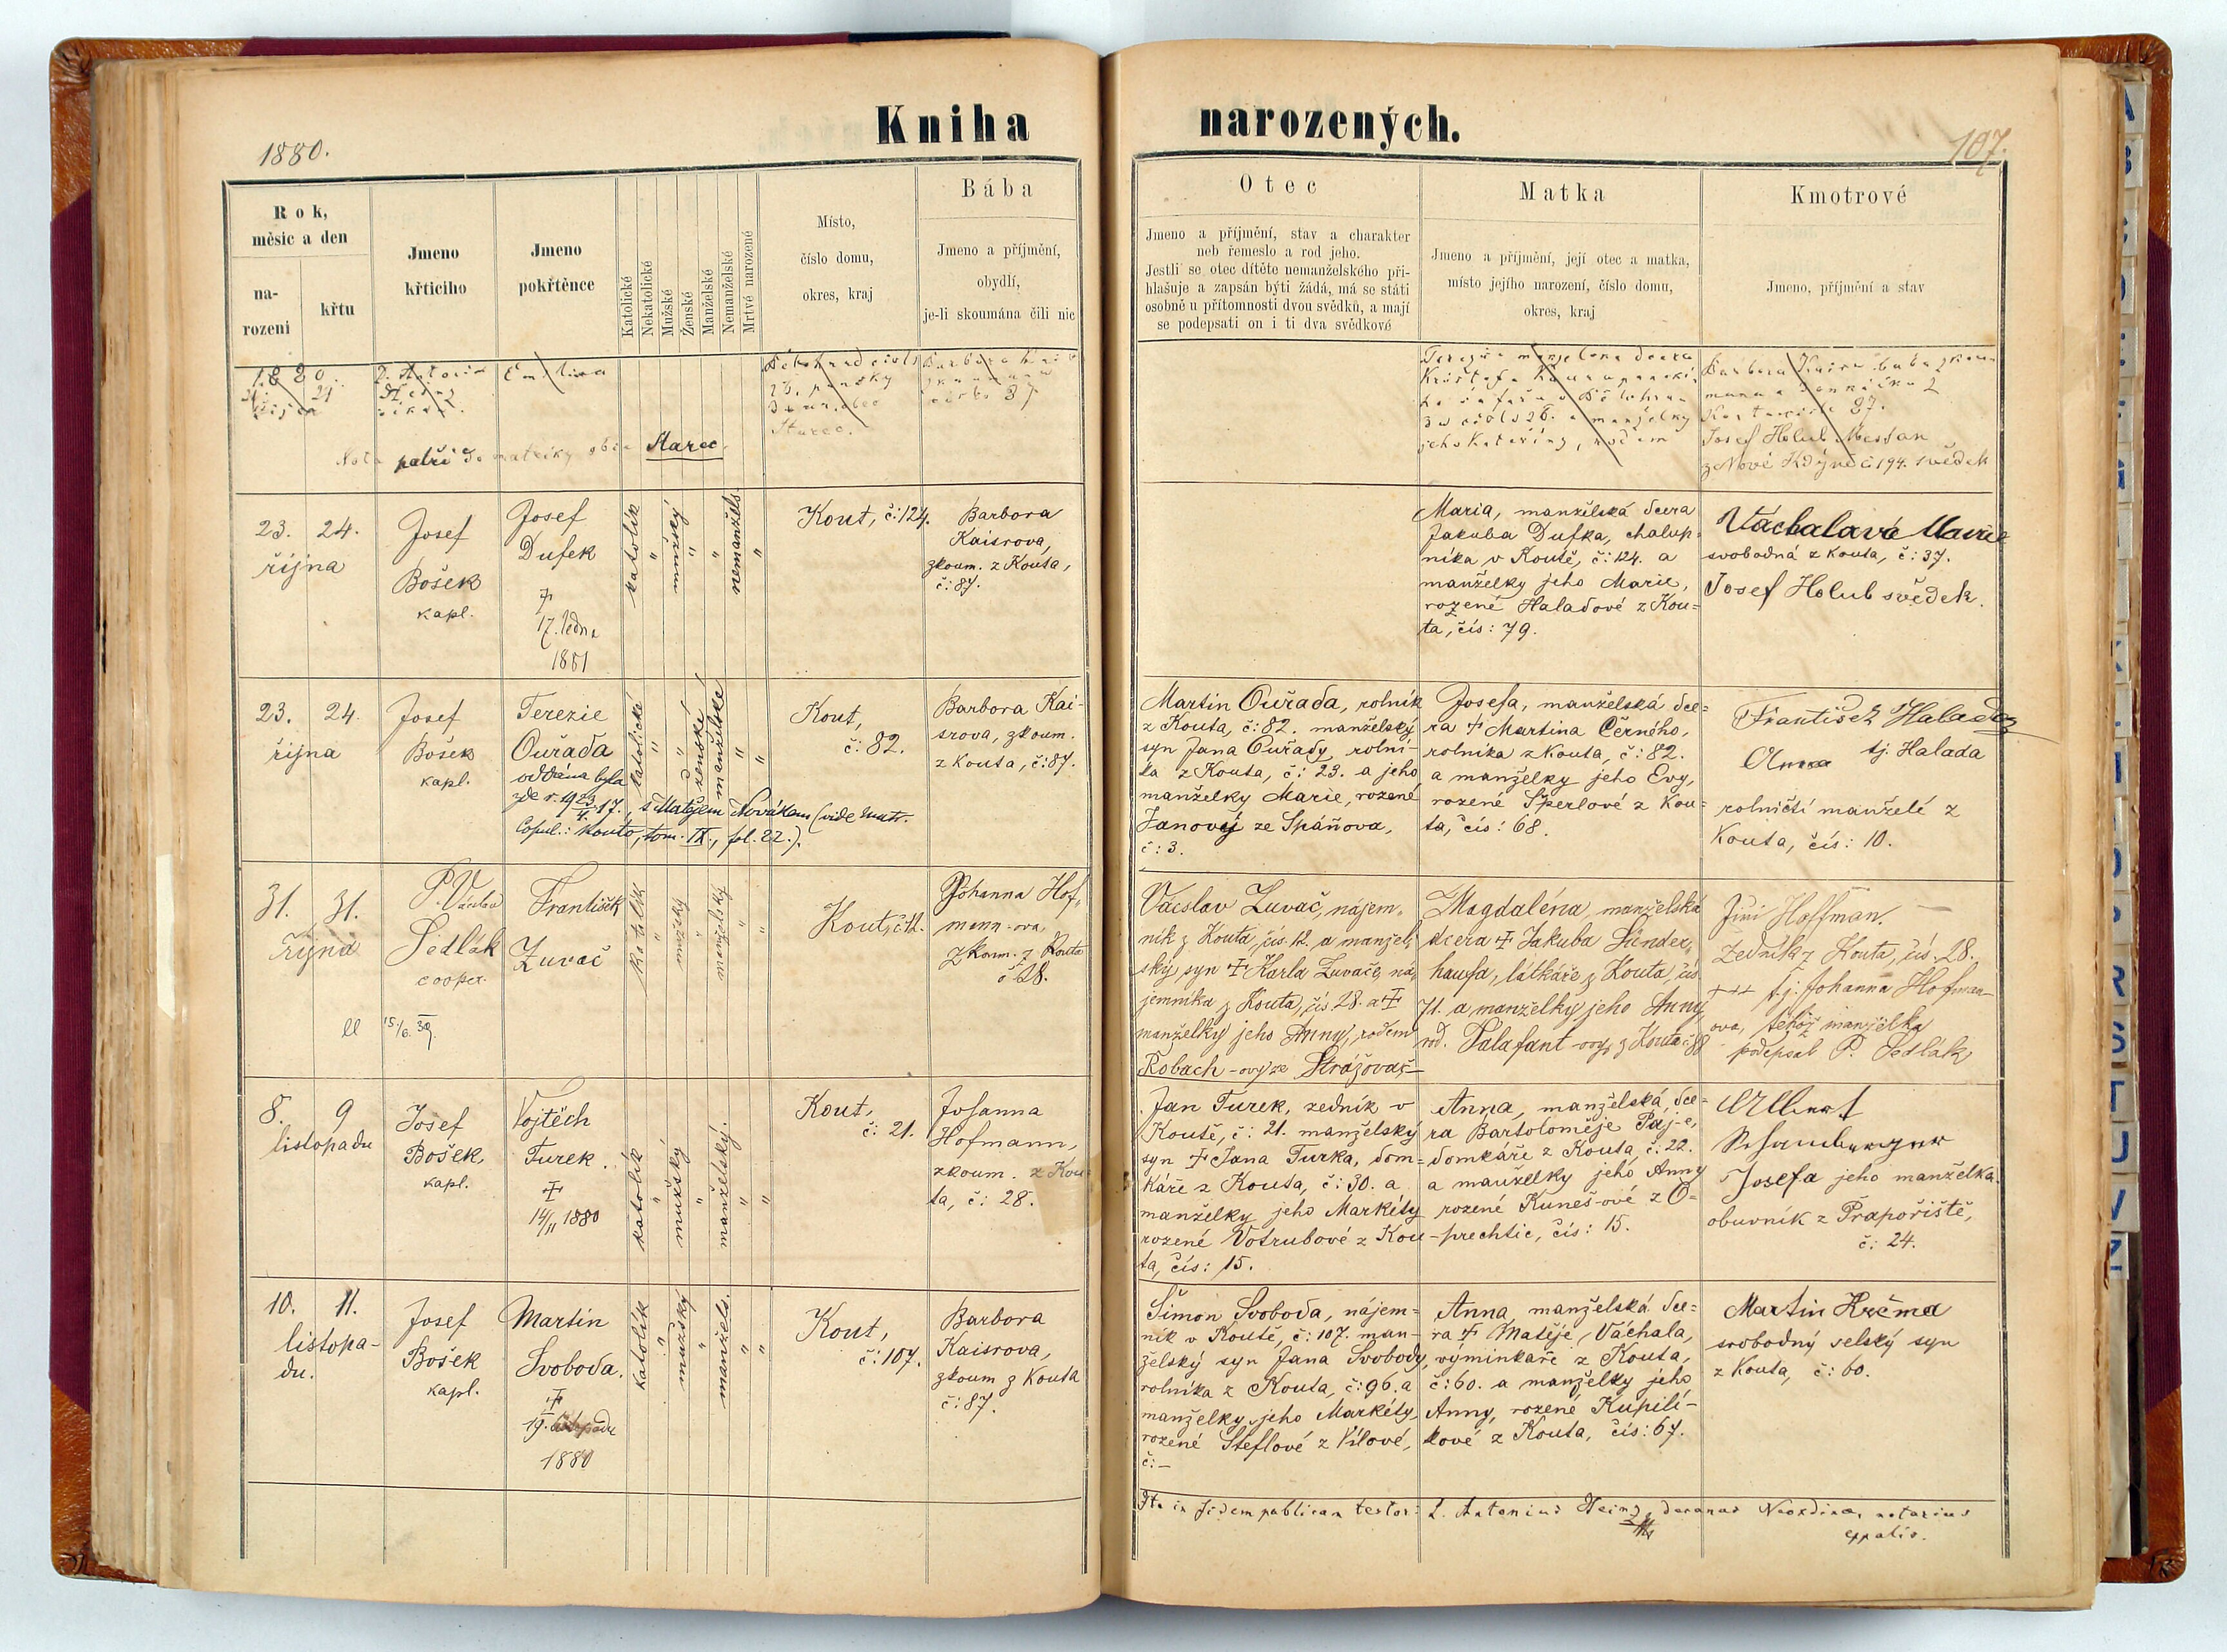 Kniha narozených.
1880.
107.
Rok,
měsíc a den
na-
rozeni
křtu
Jmeno
křticího
Jmeno
pokřtěnce
Katolické
Nekatolické
Mužské
Ženské
Manželské
Nemanželské
Mrtvě narozené
Místo,
číslo domu,
okres, kraj
Bába
Jmeno a příjmění,
obydlí,
je-li skoumána čili nic
Otec
Jmeno a příjmění, stav a charakter
neb řemeslo a rod jeho.
Jestli se otec dítěte nemanželského při-
hlašuje a zapsán býti žádá, má se státi
osobně u přítomnosti dvou svědků, a mají
se podepsati on i ti dva svědkové
Matka
Jmeno a příjmění, její otec a matka,
místo jejího narození, číslo domu,
okres, kraj
Kmotrové
Jmeno, příjmění a stav
1880.
21. 21
října
Emilina
Starec.
Josef Holub Mešťan
z Nové Kdýně č 194. svědek
Nota patří do matriky obce Starec.
23. 24.
října
Josef
Bošek
kapl.
Josef
Dufek
+
17. ledna
1881
katolík
"
mužský
"
"
nemanžels.
"
Kout, č: 124.
Barbora
Kaisrova,
zkoum. z Kouta,
č: 87.
Maria, manželská dcera
Jakuba Dufka, chalup=
níka v Koutě, č: 124. a
manželky jeho Marie,
rozené Haladové z Kou=
ta, čís: 79.
Váchalavá Marie
svobodná z Kouta, č: 37.
Josef Holub svědek.
23. 24.
října
Josef
Bošek
kapl.
Terezie
Ouřada
oddána byla
zde r. 19 23/4. 17., s Matějem Novákem (vide matr.
Copul.: Kouto, tom. IX., fol. 22.).
katolické
"
"
ženské
manželské
"
"
Kout,
č: 82.
Barbora Kai-
srova, zkoum.
z Kouta, č: 87.
Martin Ouřada, rolník
z Kouta, č: 82. manželský
syn Jana Ouřady, rolní-
ka z Kouta, č: 23. a jeho
manželky Marie, rozené
Janovy ze Spáňova,
č: 3.
Josefa, manželská dce=
ra + Martina Černého,
rolníka z Kouta, č: 82.
a manželky jeho Evy,
rozené Šperlové z Kou=
ta, čís: 68.
František Halada
Anna tj. Halada
rolničtí manželé z
Kouta, čís: 10.
31. 31.
Října
P. Václav
Sedlák
cooper.
ll 15/6. 39.
František
Zuvač
Katolík
"
mužský
"
manželský
"
"
Kout, č 12.
Johanna Hof-
mann-ova
zkoum. z Kouta
č 28.
Václav Zuvač, nájem-
ník z Kouta, čís 12. a manžel-
ský syn + Karla Zuvače, ná-
jemníka z Kouta, čís 28. a +
manželky jeho Anny, rodem
Robach-ovy ze Strážova č—
Magdaléna, manželská
dcera + Jakuba Sünder-
haufa, látkáře z Kouta, čís
71. a manželky jeho Anny,
rod. Palafant-ovy, z Kouta č 88
Jiří Hoffman. —
Zedník z Kouta, čís. 28.
+++ tj. Johanna Hofman-
ova, téhož manželka
podepsal P. Sedlák
8. 9
listopadu
Josef
Bošek,
kapl.
Vojtěch
Turek.
+
14/11 1880
katolík
"
mužský
"
manželský.
"
"
Kout,
č: 21.
Johanna
Hofmann,
zkoum. z Kou-
ta, č: 28.
Jan Turek, zedník v
Koutě, č: 21. manželský
syn + Jana Turka, dom=
káře z Kouta, č: 30. a
manželky jeho Markéty
rozené Votrubové z Kou-
ta, čís: 15.
Anna, manželská, dce=
ra Bartoloměje Páj-e,
domkáře z Kouta, č: 22.
a manželky jeho Anny
rozené Kuneš-ové z O=
prechtic, čís: 15.
Albert
Schamberger
Josefa jeho manželka
obuvník z Prapořiště,
č: 24.
10. 11.
listopa-
du.
Josef
Bošek
kapl.
Martin
Svoboda.
+
19. listopadu
1880
katolík
"
mužský
"
manžels.
"
"
Kout,
č: 107.
Barbora
Kaisrova,
zkoum z Kouta
č: 87.
Šimon Svoboda, nájem=
ník v Koutě, č: 107. man-
želský syn Jana Svobody,
rolníka z Kouta, č: 96. a
manželky jeho Markéty
rozené Šteflové z Vílové,
č: —
Anna, manželská dce=
ra + Matěje Váchala,
výminkáře z Kouta,
č: 60. a manželky jeho
Anny, rozené Kupilí-
kové z Kouta, čís: 67.
Martin Krčma
svobodný selský syn
z Kouta, č: 60.
Ita in fidem publicam testor: L. Antonius Heinz, decanus Neogdinen, notarius
appalis.